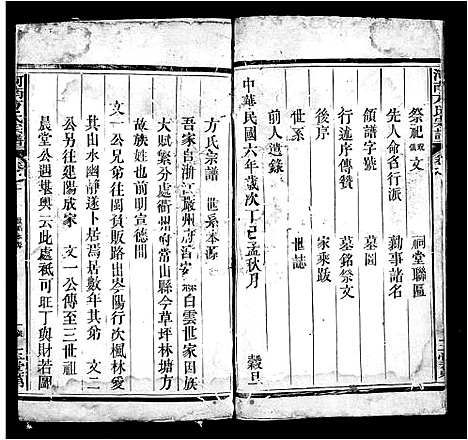 河南方氏宗譜
祭祀儀文 祠堂聯匾
先人命名行派 勷事諸名
領譜字號 墓圖
行述序傳贊 墓銘祭文
後序 家乘跋
前人遺錄 世誌
中華民國六年歲次丁巳孟秋月 穀旦
方氏宗譜 世系本源
吾家自浙江嚴州府
白雲世家因族
大賦繁遂分處衢州府常山縣今草坪林塘方
故族姓也前明宣德間
文一公兄弟往閩貿販路出岑陽行次楓林愛
其山水幽靜遂卜居焉居數年其弟 文二
公另往建陽成家 文一公傳至三世祖
晨堂公遇堪輿云此處祗可旺丁與財若圖
河南方氏宗譜